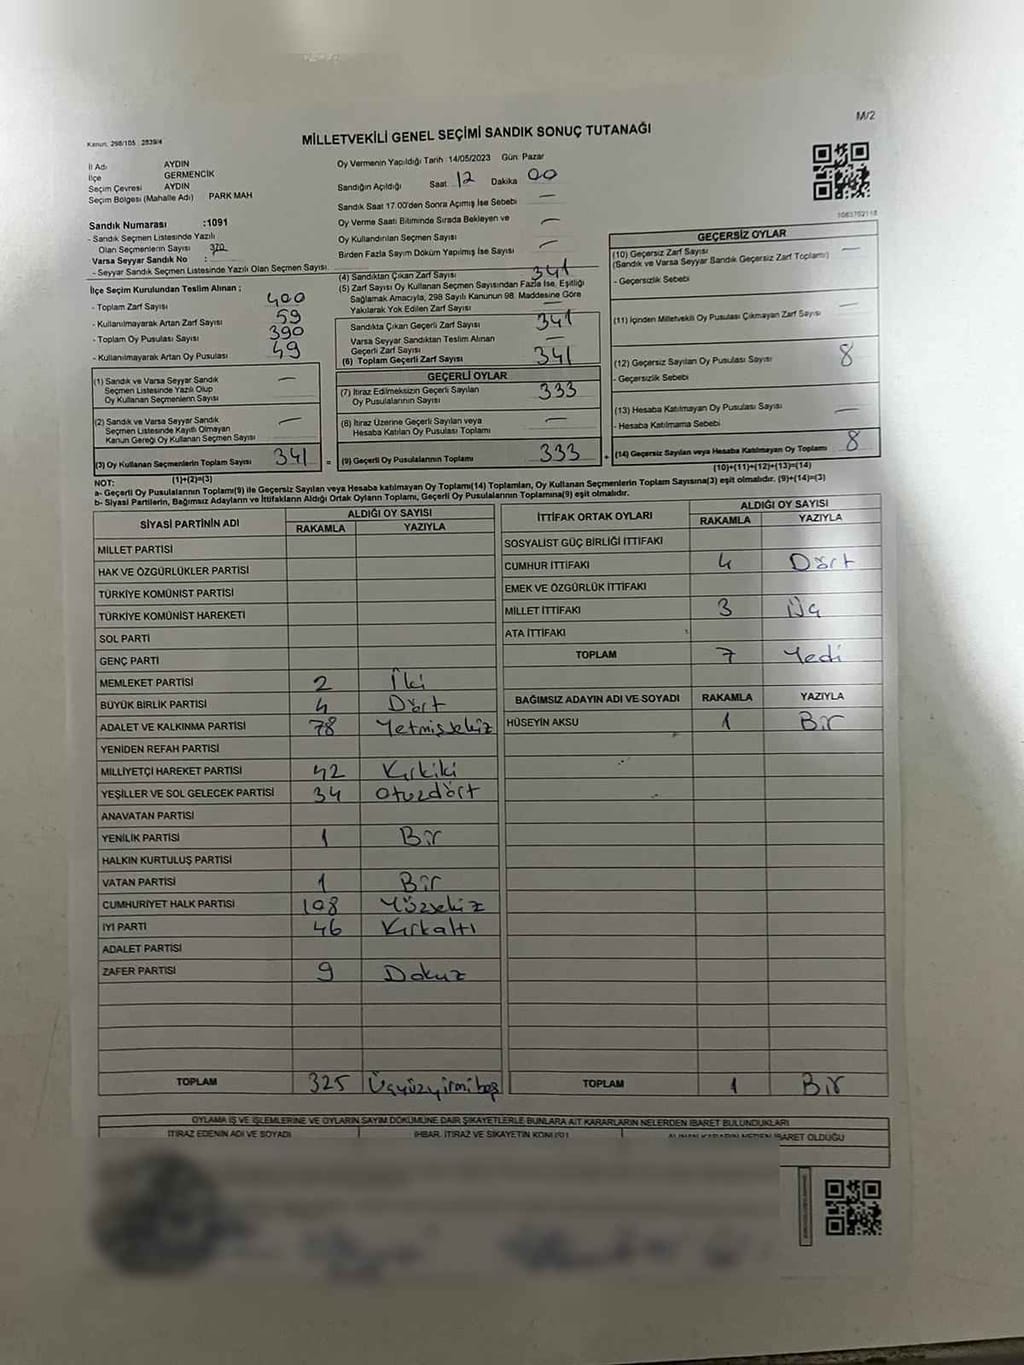 M/2
Kanun: 298/105 2839/4
MİLLETVEKİLİ GENEL SEÇİMİ SANDIK SONUÇ TUTANAĞI
İl Adı AYDIN
İlçe GERMENCİK
Seçim Çevresi AYDIN
Seçim Bölgesi (Mahalle Adı) PARK MAH
Sandık Numarası :1091
- Sandık Seçmen Listesinde Yazılı
Olan Seçmenlerin Sayısı 370
Varsa Seyyar Sandık No :
- Seyyar Sandık Seçmen Listesinde Yazılı Olan Seçmen Sayısı:
Oy Vermenin Yapıldığı Tarih 14/05/2023 Gün: Pazar
Sandığın Açıldığı Saat 12 Dakika 00
Sandık Saat 17.00'den Sonra Açılmış İse Sebebi —
Oy Verme Saati Bitiminde Sırada Bekleyen ve
Oy Kullandırılan Seçmen Sayısı —
Birden Fazla Sayım Döküm Yapılmış İse Sayısı —
İlçe Seçim Kurulundan Teslim Alınan :
- Toplam Zarf Sayısı 400
- Kullanılmayarak Artan Zarf Sayısı 59
- Toplam Oy Pusulası Sayısı 390
- Kullanılmayarak Artan Oy Pusulası 49
(1) Sandık ve Varsa Seyyar Sandık —
Seçmen Listesinde Yazılı Olup
Oy Kullanan Seçmenlerin Sayısı
(2) Sandık ve Varsa Seyyar Sandık —
Seçmen Listesinde Kayıtlı Olmayan
Kanun Gereği Oy Kullanan Seçmen Sayısı
(3) Oy Kullanan Seçmenlerin Toplam Sayısı 341
(1)+(2)=(3)
(4) Sandıktan Çıkan Zarf Sayısı 341
(5) Zarf Sayısı Oy Kullanan Seçmen Sayısından Fazla İse, Eşitliği
Sağlamak Amacıyla, 298 Sayılı Kanunun 98. Maddesine Göre
Yakılarak Yok Edilen Zarf Sayısı —
Sandıkta Çıkan Geçerli Zarf Sayısı 341
Varsa Seyyar Sandıktan Teslim Alınan
Geçerli Zarf Sayısı —
(6) Toplam Geçerli Zarf Sayısı 341
GEÇERLİ OYLAR
(7) İtiraz Edilmeksizin Geçerli Sayılan
Oy Pusulalarının Sayısı 333
(8) İtiraz Üzerine Geçerli Sayılan veya
Hesaba Katılan Oy Pusulası Toplamı —
= (9) Geçerli Oy Pusulalarının Toplamı 333 +
1063702118
GEÇERSİZ OYLAR
(10) Geçersiz Zarf Sayısı —
(Sandık ve Varsa Seyyar Sandık Geçersiz Zarf Toplamı)
- Geçersizlik Sebebi
(11) İçinden Milletvekili Oy Pusulası Çıkmayan Zarf Sayısı —
(12) Geçersiz Sayılan Oy Pusulası Sayısı 8
- Geçersizlik Sebebi
(13) Hesaba Katılmayan Oy Pusulası Sayısı —
- Hesaba Katılmama Sebebi
(14) Geçersiz Sayılan veya Hesaba Katılmayan Oy Toplamı 8
(10)+(11)+(12)+(13)=(14)
NOT:
a- Geçerli Oy Pusulasının Toplamı(9) ile Geçersiz Sayılan veya Hesaba Katılmayan Oy Toplamı(14) Toplamları, Oy Kullanan Seçmenlerin Toplam Sayısına(3) eşit olmalıdır. (9)+(14)=(3)
b- Siyasi Partilerin, Bağımsız Adayların ve İttifakların Aldığı Ortak Oyların Toplamı, Geçerli Oy Pusulasının Toplamına(9) eşit olmalıdır.
SİYASİ PARTİNİN ADI ALDIĞI OY SAYISI
RAKAMLA YAZIYLA
MİLLET PARTİSİ
HAK VE ÖZGÜRLÜKLER PARTİSİ
TÜRKİYE KOMÜNİST PARTİSİ
TÜRKİYE KOMÜNİST HAREKETİ
SOL PARTİ
GENÇ PARTİ
MEMLEKET PARTİSİ 2 İki
BÜYÜK BİRLİK PARTİSİ 4 Dört
ADALET VE KALKINMA PARTİSİ 78 Yetmişsekiz
YENİDEN REFAH PARTİSİ
MİLLİYETÇİ HAREKET PARTİSİ 42 Kırkiki
YEŞİLLER VE SOL GELECEK PARTİSİ 34 Otuzdört
ANAVATAN PARTİSİ
YENİLİK PARTİSİ 1 Bir
HALKIN KURTULUŞ PARTİSİ
VATAN PARTİSİ 1 Bir
CUMHURİYET HALK PARTİSİ 108 Yüzsekiz
İYİ PARTİ 46 Kırkaltı
ADALET PARTİSİ
ZAFER PARTİSİ 9 Dokuz
TOPLAM 325 Üçyüzyirmibeş
İTTİFAK ORTAK OYLARI ALDIĞI OY SAYISI
RAKAMLA YAZIYLA
SOSYALİST GÜÇ BİRLİĞİ İTTİFAKI
CUMHUR İTTİFAKI 4 Dört
EMEK VE ÖZGÜRLÜK İTTİFAKI
MİLLET İTTİFAKI 3 Üç
ATA İTTİFAKI
TOPLAM 7 Yedi
BAĞIMSIZ ADAYIN ADI VE SOYADI RAKAMLA YAZIYLA
HÜSEYİN AKSU 1 Bir
TOPLAM 1 Bir
OYLAMA İŞ VE İŞLEMLERİNE VE OYLARIN SAYIM DÖKÜMÜNE DAİR ŞİKAYETLERLE BUNLARA AİT KARARLARIN NELERDEN İBARET BULUNDUKLARI
İTİRAZ EDENİN ADI VE SOYADI İHBAR, İTİRAZ VE ŞİKAYETİN KONUSU İBARET OLDUĞU